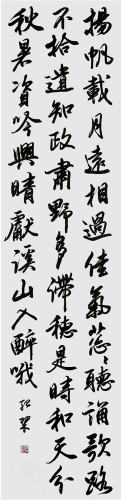 揚帆載月遠相過佳氣葱〻聽誦歌路
不拾遺知政肅野多滯穗是時和天分
秋暑資吟興晴獻溪山入醉哦